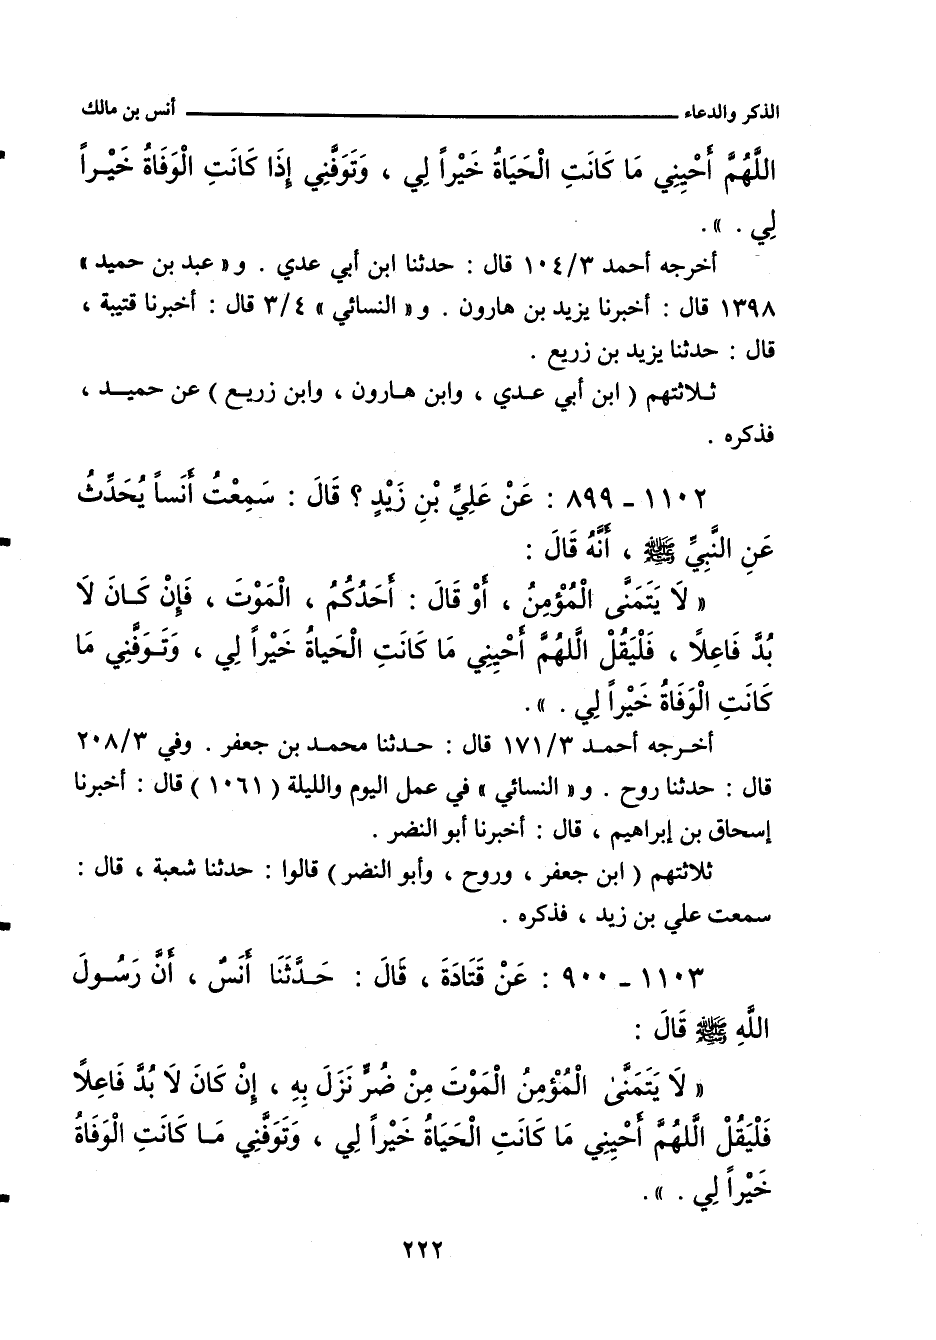 الذكر والدعاء ــــــــــــــــ أنس بن مالك
اللَّهُمَّ أَحْيِنِي مَا كَانَتِ الْحَيَاةُ خَيْراً لِي ، وَتَوَفَّنِي إِذَا كَانَتِ الْوَفَاةُ خَيْـراً
لِي . » .
أخرجه أحمد ١٠٤/٣ قال : حدثنا ابن أبي عدي . و« عبد بن حميد »
١٣٩٨ قال : أخبرنا يزيد بن هارون . و« النسائي » ٣/٤ قال : أخبرنا قتيبة ،
قال : حدثنا يزيد بن زريع .
ثـلاثتهم ( ابن أبي عـدي ، وابن هـارون ، وابن زريـع ) عن حميـد ،
فذكره .
١١٠٢ ـ ٨٩٩ : عَنْ عَلِيِّ بْنِ زَيْدٍ ؟ قَالَ : سَمِعْتُ أَنَساً يُحَدِّثُ
عَنِ النَّبِيِّ ﷺ ، أَنَّهُ قَالَ :
« لَا يَتَمَنَّى الْمُؤْمِنُ ، أَوْ قَالَ : أَحَدُكُمُ ، الْمَوْتَ ، فَإِنْ كَـانَ لَا
بُدَّ فَاعِلًا ، فَلْيَقُلْ الَّلهُمَّ أَحْيِنِي مَا كَانَتِ الْحَياةُ خَيْراً لِي ، وَتَـوَفَّنِي مَا
كَانَتِ الْوَفَاةُ خَيْراً لِي . » .
أخـرجه أحمـد ١٧١/٣ قال : حـدثنا محمـد بن جعفر . وفي ٢٠٨/٣
قال : حدثنا روح . و« النسائي » في عمل اليوم والليلة ( ١٠٦١ ) قال : أخبرنا
إسحاق بن إبراهيم ، قال : أخبرنا أبو النضر .
ثلاثتهم ( ابن جعفر ، وروح ، وأبو النضر ) قالوا : حدثنا شعبة ، قال :
سمعت علي بن زيد ، فذكره .
١١٠٣ ـ ٩٠٠ : عَنْ قَتَادَةَ ، قَالَ : حَـدَّثَنَا أَنَسٌ ، أَنَّ رَسُـولَ
اللَّهِ ﷺ قَالَ :
« لَا يَتَمَنَّىٰ الْمُؤْمِنُ الْمَوْتَ مِنْ ضُرٍّ نَزَلَ بِهِ ، إِنْ كَانَ لَا بُدَّ فَاعِلًا
فَلْيَقُلْ الَّلهُمَّ أَحْيِنِي مَا كَانَتِ الْحَيَاةُ خَيْراً لِي ، وَتَوَفَّنِي مَـا كَانَتِ الْوَفَاةُ
خَيْراً لِي . » .
٢٢٢